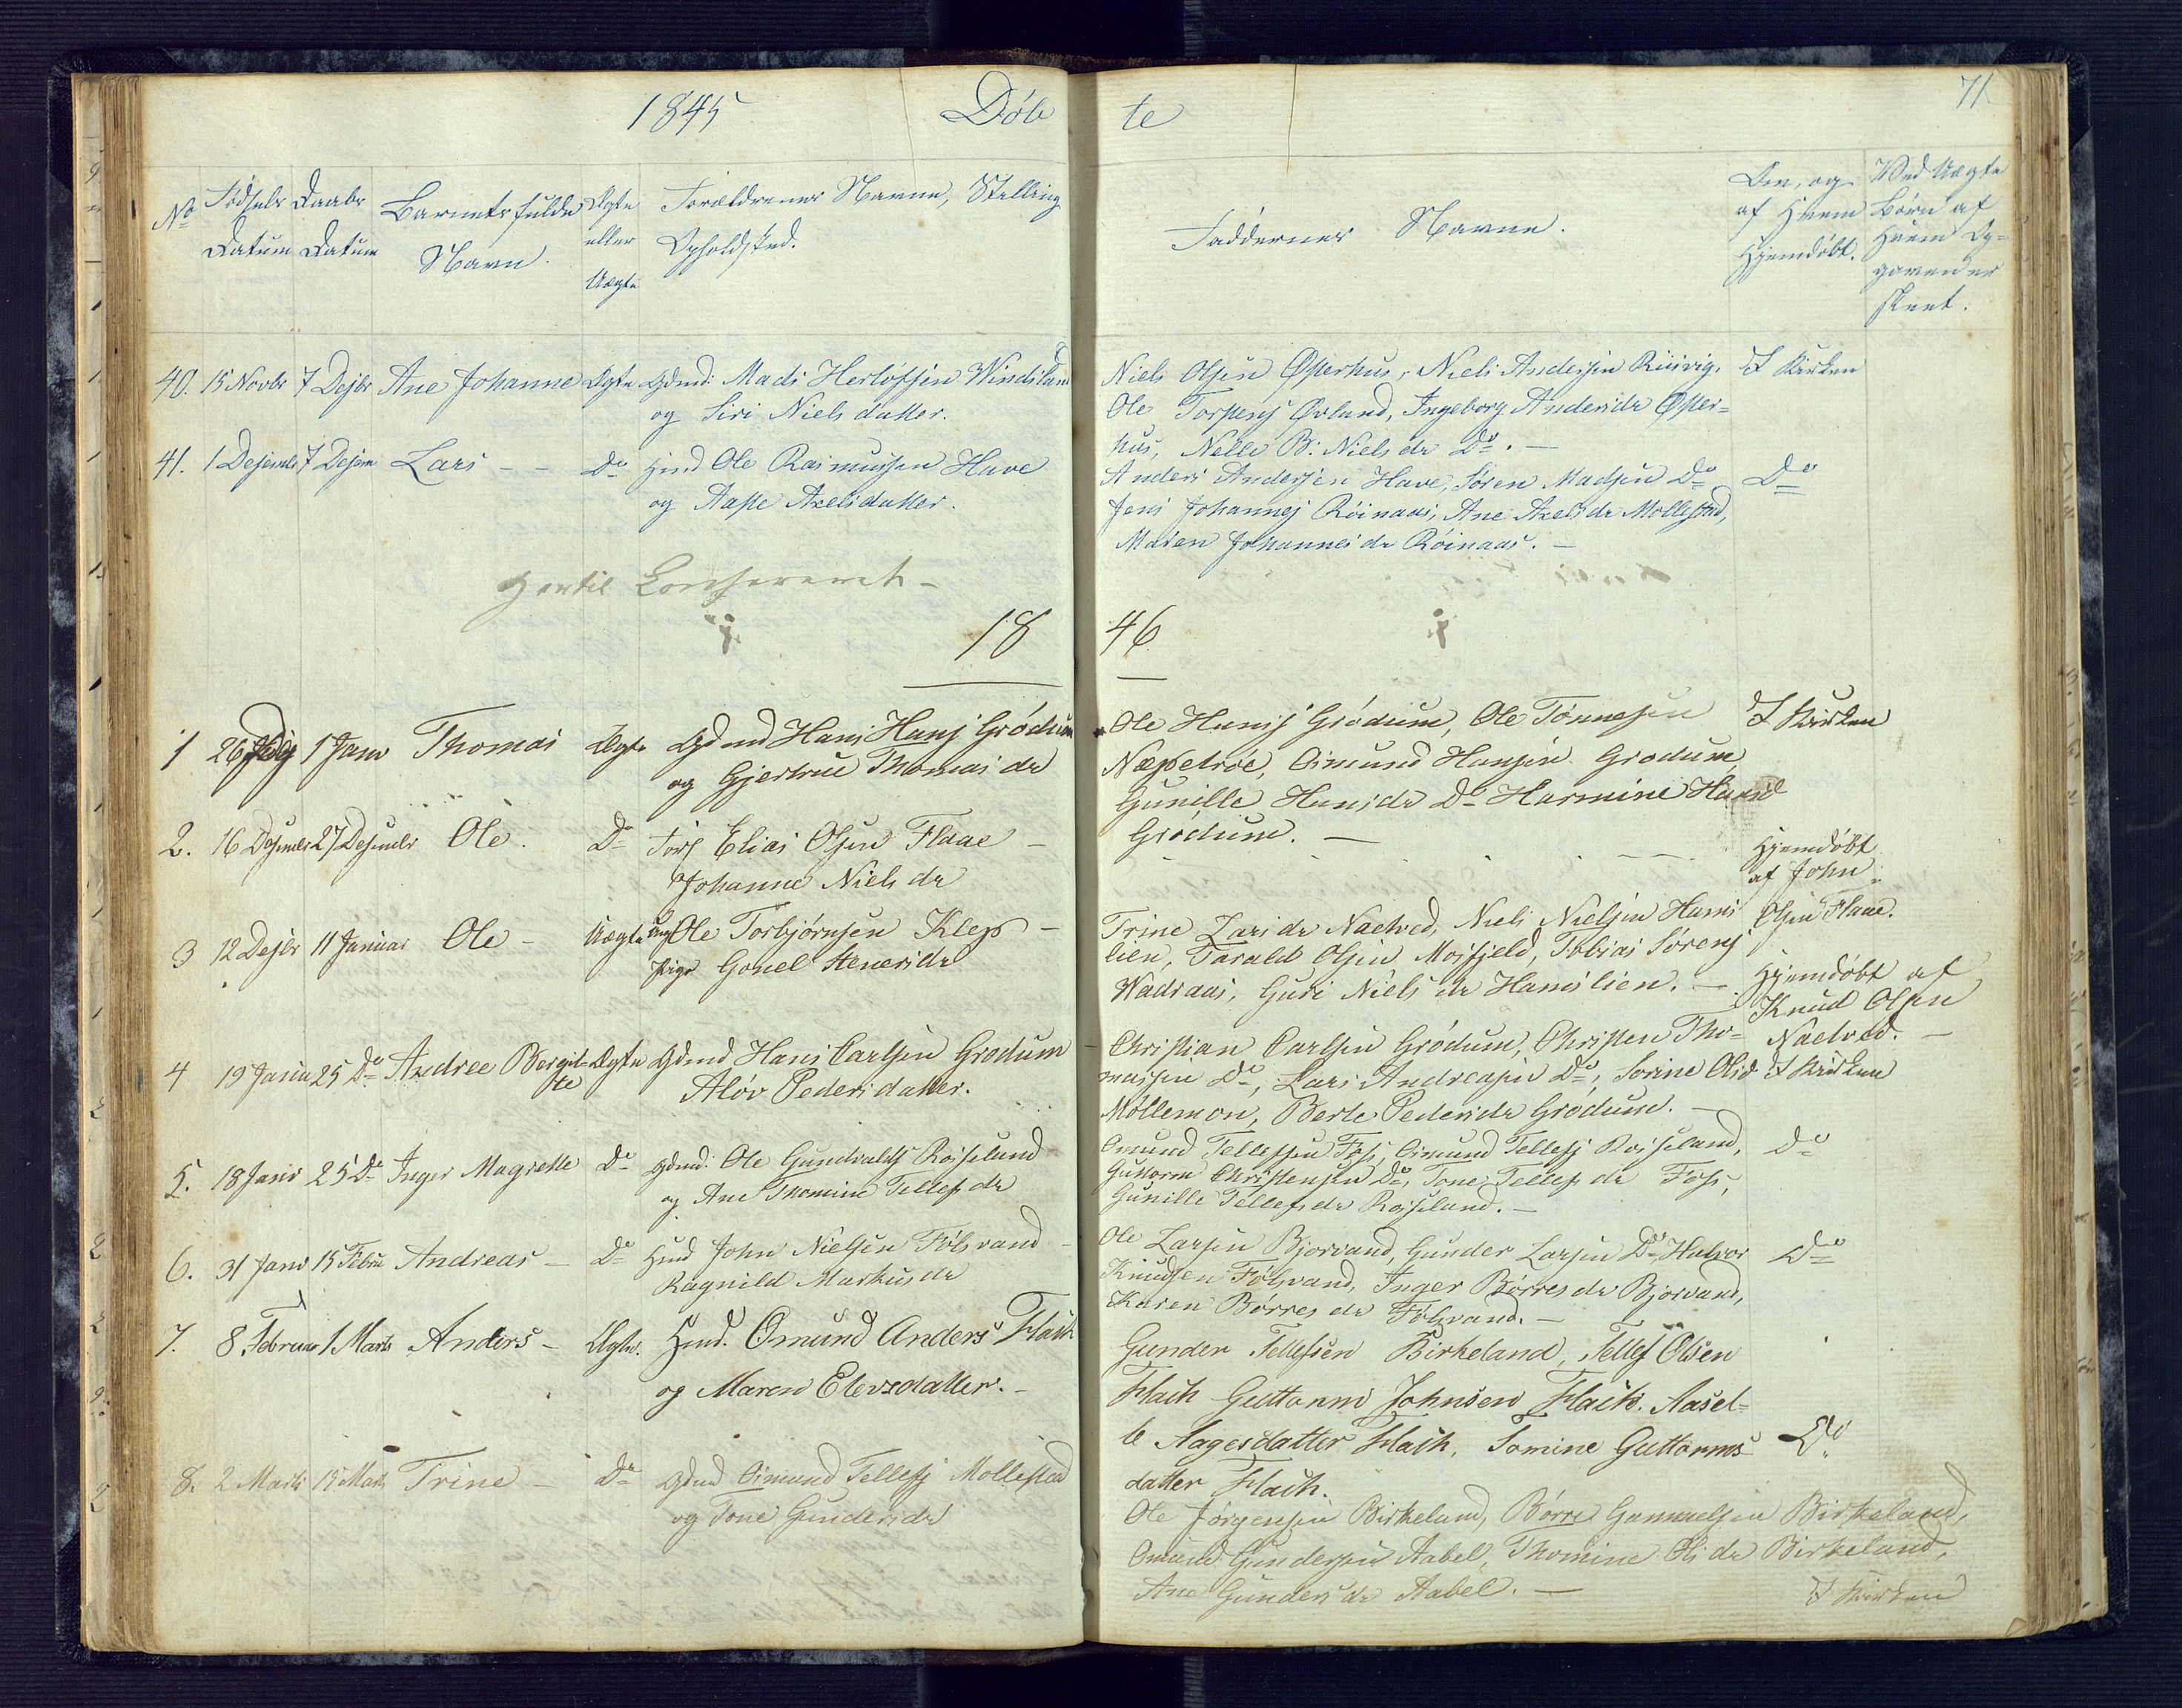 1845 Döb te 71
No Födsels Datum Daabs Datum Barnets fulde Navn. Ægte eller Uægte Forældrenes Navne, Stilling Opholdsted. Faddernes Navne. Om, og af Hvem Hjemdöbt. Ved Uægte Börn af Hvem Opgaven er skeet.
40. 15 Novbr 7 Desbr Ane Johanne Ægte Gdmd: Mads Herlofsen Windsland
og Siri Nielsdatter.
Niels Olsen Østerhus, Niels Andersen I Kirken
Ole Øvland, Ingeborg Andersdr Øster=
hus, Nelle B: Nielsdr Do. —
41. 1 Desembr 7 Desem Lars - - Do Hmd Ole Rasmussen Have
og Aaste Axelsdatter.
Anders Andersen Have, Sören Madsen Do Do
Jens Johannes Röinaas, Ane Axelsdr Mollestad,
Maren Johannesdr Röinaas. —
18 46
1 26 1 Janv Thomas Ægte Gdmd Hans Hans Grödum
og Gjertrue Thomasdr
Ole Hansj Grödum, Ole Tönnesen I Kirken
Næpetröe, Osmund Hansen Grodum,
Gunille Hansdr Do Harmine
Grödum. —
2. 16 Desember 27 Desembr Ole. Do Elias Olsen Flaae —
Johanne Nielsdr
Hjemdöbt
af John
Olsen Flaae.
3 12 Desbr 11 Januar Ole - Uægte Ung Ole Torbjörnsen Klep —
Pige Gonel Stenersdr
Trine Larsdr Naeved, Niels Nielsen Hans
lien, Tarald Olsen Mosfjeld, Tobias Sörensj
Wadraas, Guri Nielsdr Hanslien. —
Hjemdöbt af
Knud Olsen
Naeved. —
4 19 Janua 25 Do Andree Bergit= Ægte Gdmd Hans Carlsen Grodum
te Alöv Pedersdatter.
Christian Carlsen Grödum, Christen Tho=
massen Do, Lars Andreasen Do, Sorine Olsd I Kirken
Möllemon, Berte Pedersdr Grödum. —
5. 18 Janv 25 Do Inger Magrette Do Gdmd. Ole Gundvalds Roiseland
og Ane Thomine Tellefsdr
Omund Tellefsen Fos, Osmund Tellefsj Roiseland, Do
Guttorm Christensen Do, Tone Tellefsdr Fos,
Gunille Tellefsdr Roiseland. —
6. 31 Janv 15 Febru Andreas — Do Hmd John Nielsen Fölsvand —
Ragnild Markusdr
Ole Larsen Bjorvand, Gunder Larsen Do, Halvor Do
Knudsen Fölsvand, Inger Börresdr Bjorvand,
Karen Börresdr Fölsvand. —
7. 8. Februar 1 Marts Anders - Ægte. Hmd. Omund Anders Flach
og Maren Elevsdatter. -
Gunder Tellefsen Birkeland, Tellef Olsen
Flach Guttorm Johnsen Flach. Aasel=
le Aagesdatter Flach, Tomine Guttorms- Do
datter Flach.
8. 2 Marts 15 Marts Trine — Do Gdmd Osmund Tellefsj Mollestad
og Tone Gundersdr
Ole Jörgensen Birkeland, Börre Gunnuelsen Birkeland,
Omund Gundersen Aabel, Thomine Olsdr Birkeland,
Ane Gundersdr Aabel. — I Kirken